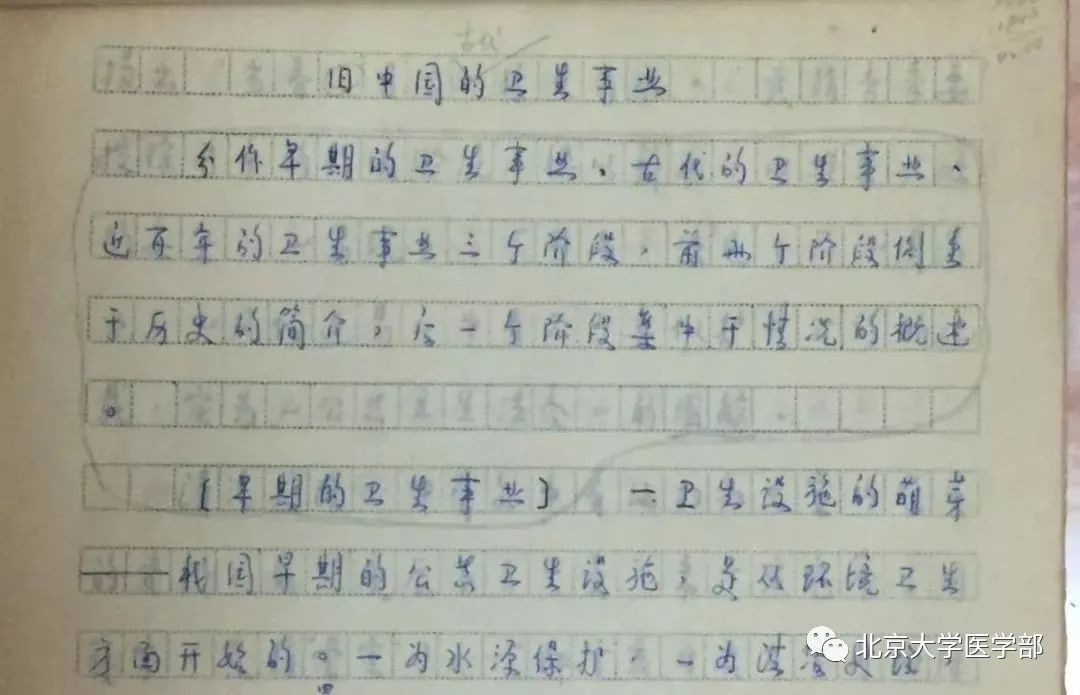 古代
旧中国的卫生事业
分作早期的卫生事业、古代的卫生事业、
近百年的卫生事业三个阶段，前两个阶段侧重
于历史的简介，后一个阶段集中于情况的概述
。
［早期的卫生事业］ 一卫生设施的萌芽
我国早期的公共卫生设施，是从环境卫生
方面开始的。一为水源保护，一为
北京大学医学部